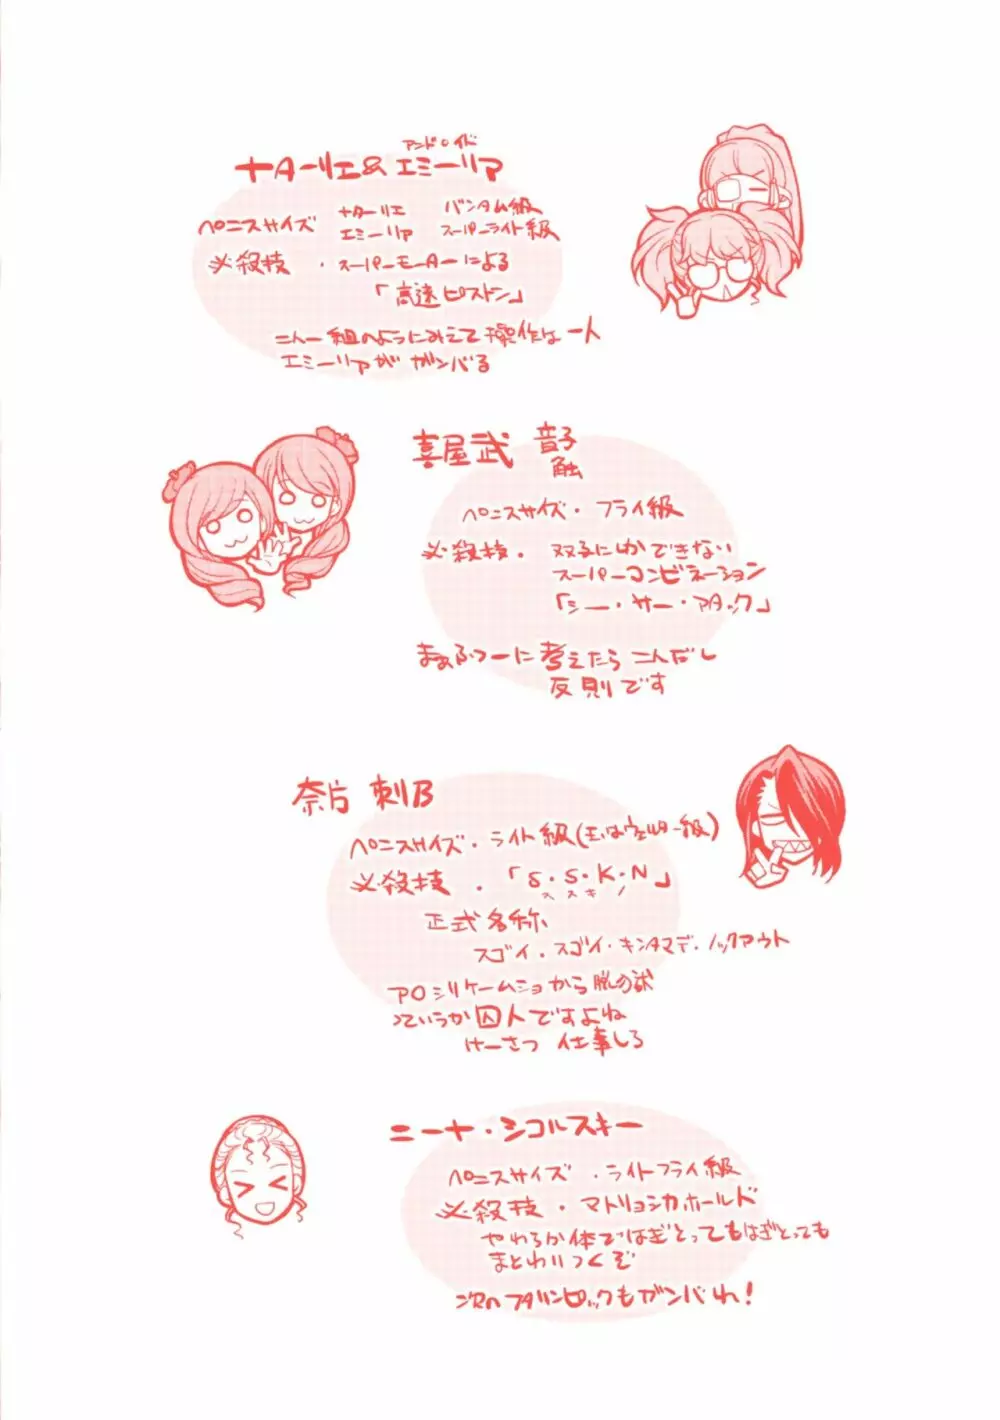 アンドロイド
ナターリエ&エミーリア
ペニスサイズ ナターリエ バンタム級
エミーリア スーパーライト級
必殺技・スーパーモーターによる
「高速ピストン」
二人一組のようにみえて操作は一人
エミーリアがガンバる
喜屋武 音子
触
ペニスサイズ・フライ級
必殺技・双子にしかできない
スーパーコンビネーション
「シー・サー・アタック」
まぁふつーに考えたら二人だし
反則です
奈片 刺B
ペニスサイズ・ライト級(玉はウェルター級)
必殺技・「S・S・K・N」
ス ス キ ノ
正式名称
スゴイ・スゴイ・キンタマデ・ノックアウト
アOシリケームショから脱の獄
っていうか囚人ですよね
けーさつ 仕事しろ
ニーナ・シコルスキー
ペニスサイズ・ライトフライ級
必殺技・マトリョシカホールド
やわらか体ではぎとってもはぎとっても
まとわりつくぞ
次のフタリンピックもガンバれ!